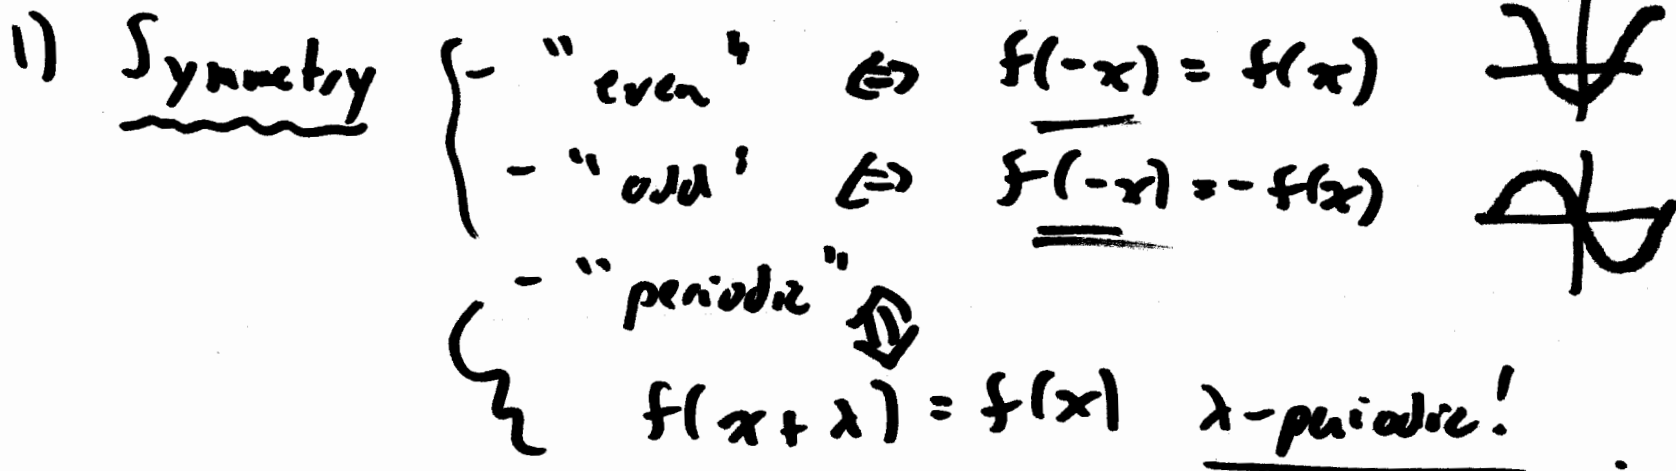 1) Symmetry - "even" ⇔ f(-x) = f(x)
- "odd" ⇔ f(-x) = - f(x)
- "periodic" ⇕
f(x + λ) = f(x) λ-periodic!